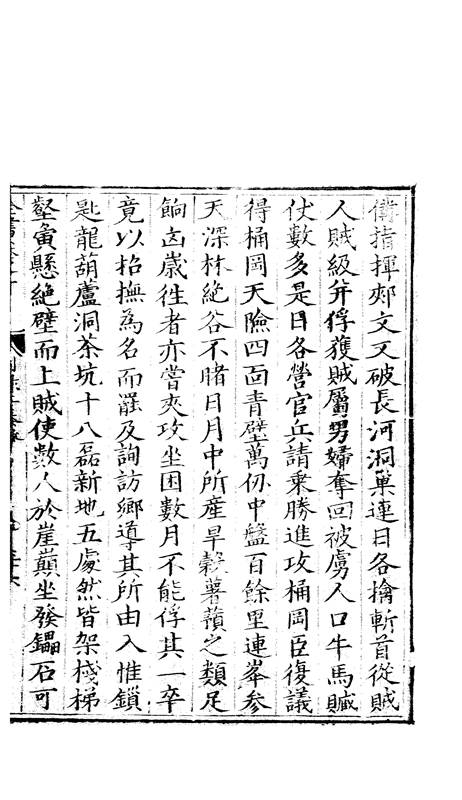 備指揮郟文又破長河洞巢連日各擒斬首從賊
人賊級并俘獲賊屬男婦奪回被虜人口牛馬贓
仗數多是日各營官兵請乘勝進攻桶岡臣復議
得桶岡天險四面青壁萬仞中盤百餘里連峯參
天深林絕谷不睹日月中所產旱穀薯蕷之類足
餉凶歲徃者亦嘗夾攻坐困數月不能俘其一卒
竟以招撫為名而罷及詢訪鄉導其所由入惟鎖
匙龍葫蘆洞茶坑十八磊新地五處然皆架棧梯
壑夤懸絕壁而上賊使數人於崖巔坐發礧石可